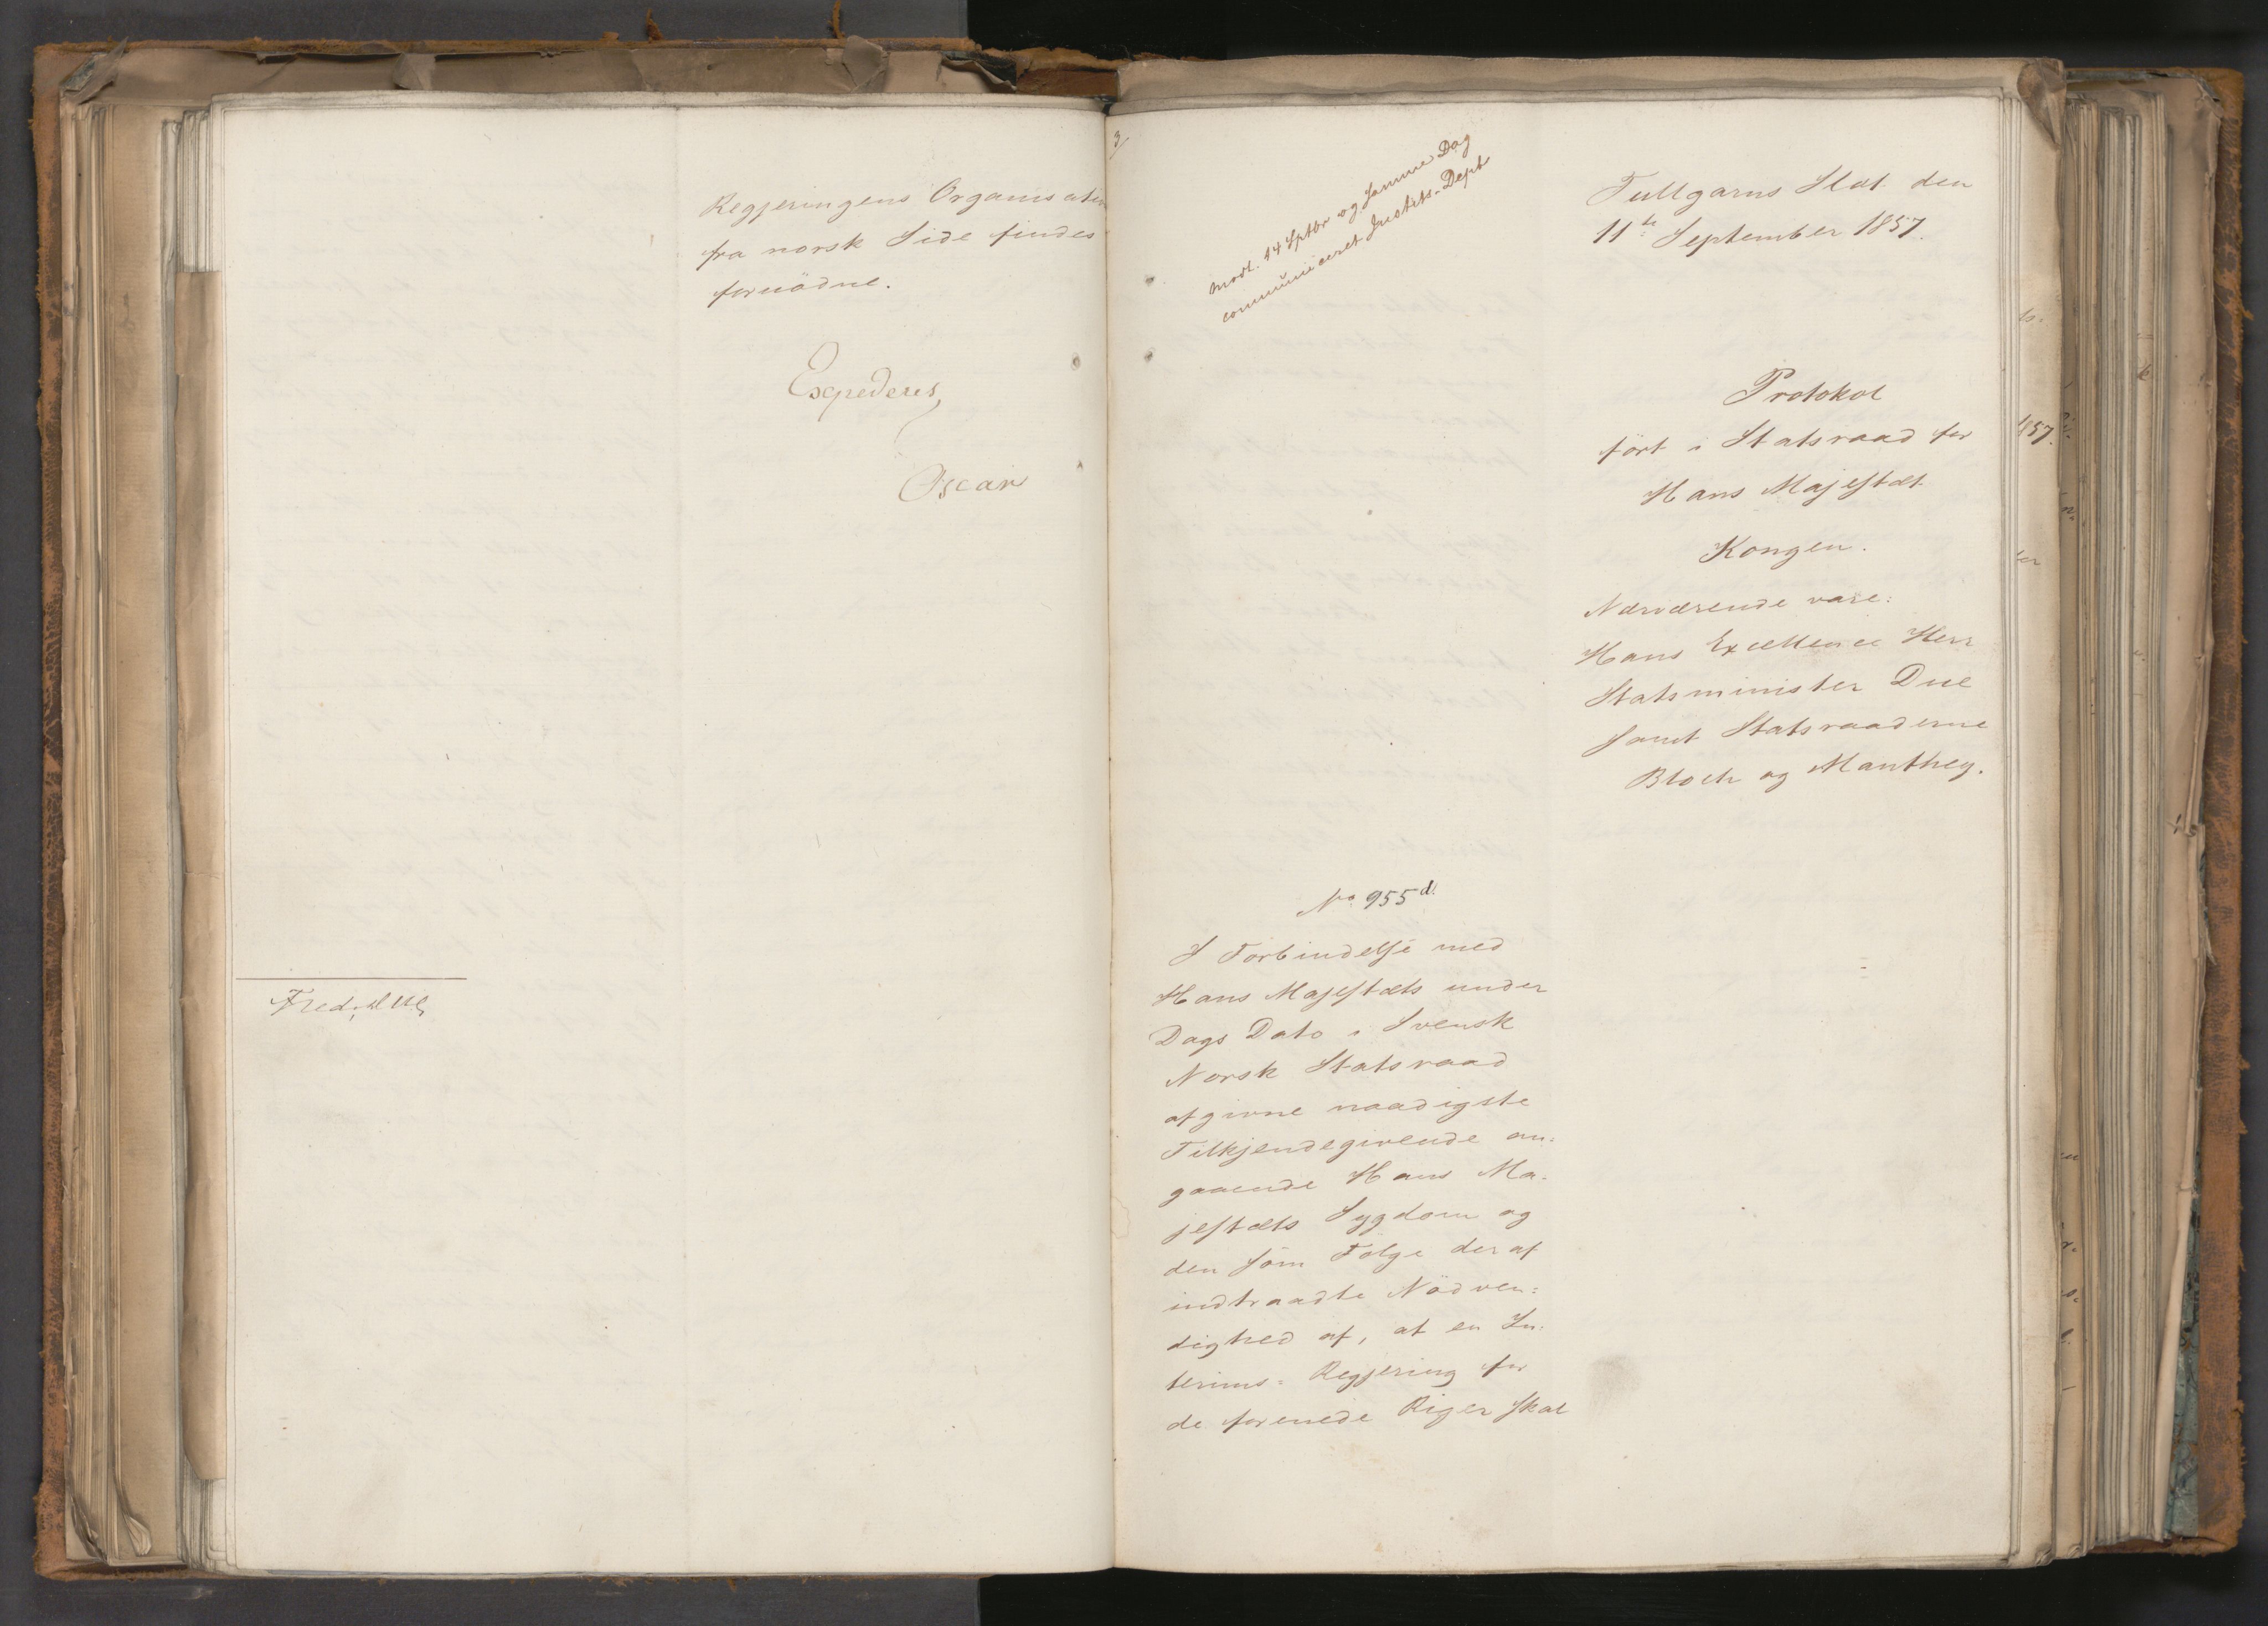 Regjeringens Organisation
fra norsk Side findes
fornödne.
Expederes,
Oscar
Fred. Due
3/
Modt. 14 Sptbr og Samme Dag
communiceret Justits-Dept
Tullgarns Slot den
11te September 1857.
Protokol
fört i Statsraad for
Hans Majestæt
Kongen.
Nærværende vare:
Hans Excellence Herr
Statsminister Due
samt Statsraaderne
Bloch og Manthey.
No 955d.
I Forbindelse med
Hans Majestæts under
Dags Dato i Svensk
Norsk Statsraad
afgivne naadigste
Tilkjendegivende an-
gaaende Hans Ma-
jestæts Sygdom og
den som Fölge deraf
indtraadte Nödven-
dighed af, at en In-
terims-Regjering for
de forenede Riger skal